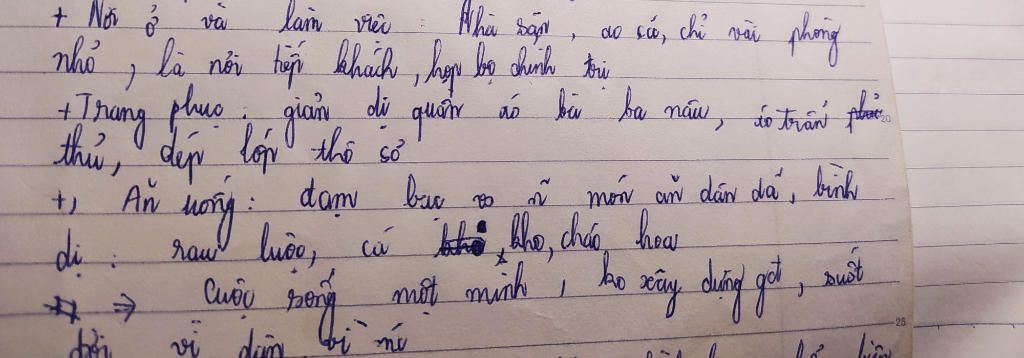 + Nơi ở và làm việc : Nhà sàn, ao cá, chỉ vài phòng
nhỏ, là nơi tiếp khách, họp bộ chính trị
+ Trang phục : giản dị quần áo bà ba nâu, áo trấn
thủ, dép lốp thô sơ 20
+, Ăn uống : đạm bạc vs ~ món ăn dân dã, bình
dị : rau luộc, cá kho, cháo hoa
⇒ Cuộc sống một mình, ko xây dựng gđ, suốt
đời vì dân vì nc 25